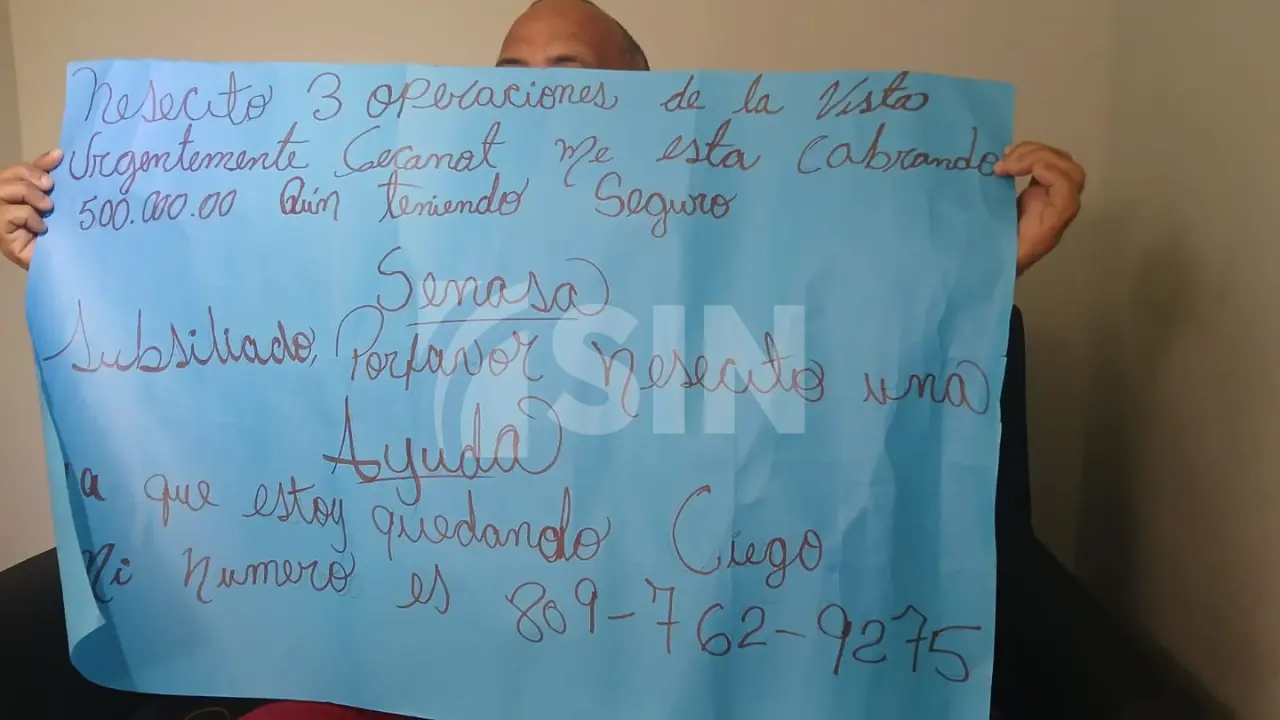 Nesecito 3 operaciones de la Vista
Urgentemente Cecanot me esta Cabrando
500.000.00 Aún teniendo Seguro
Senasa
Subsiliado, Porfavor Nesecito una
Ayuda
a que estoy quedando Ciego
Mi Numero es 809-762-9275
SIN